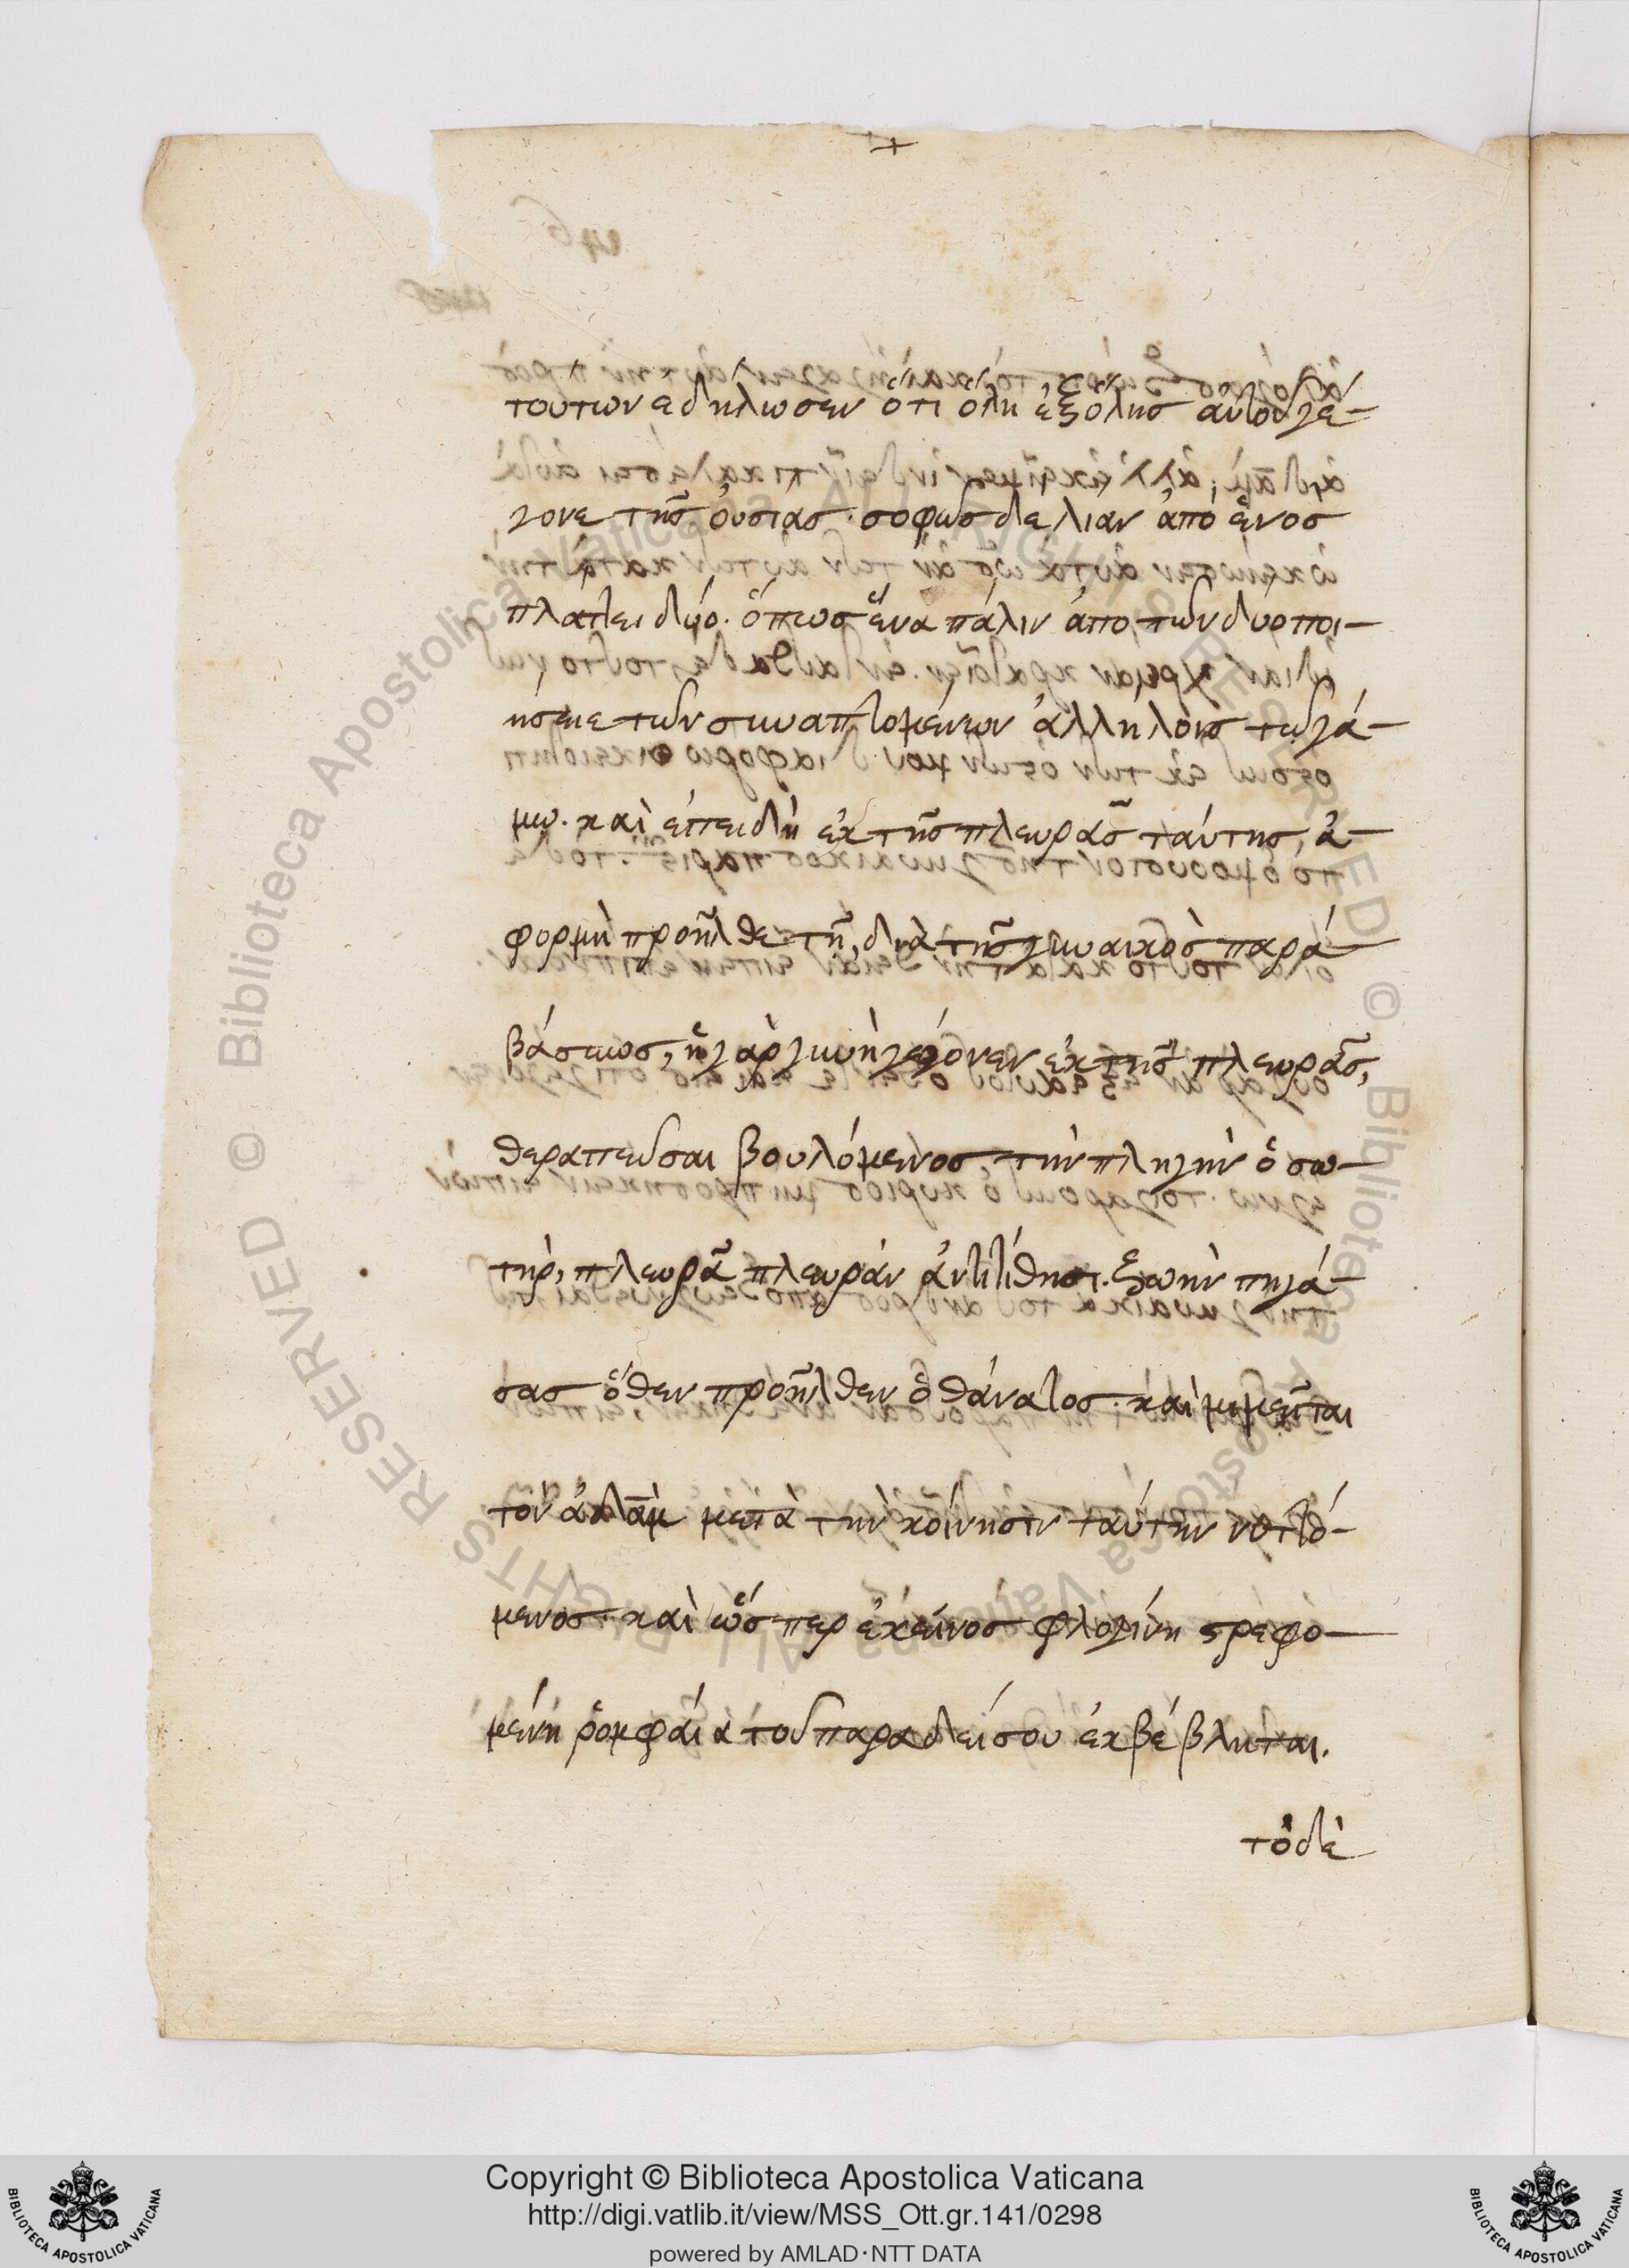 τούτων ἐδήλωσεν ὅτι ὅλη ἐξ ὅλης αὐτοῦ γέ-
γονε τῆς οὐσίας. σοφῶς δε λίαν ἀπο ἑνος
πλάττει δύο. ὅπως ἕνα πάλιν ἀπο τῶν δύο ποι-
ήσειε τῶν συναπτομένων ἀλλήλοις τῶ γά-
μω. καὶ ἐπειδὴ ἐκ τῆς πλευρᾶς ταύτης, ἀ-
φορμὴ προῆλθε τῆ, διὰ τῆς γυναικὸς παρα-
βάσεως, ἡ γὰρ γυνὴ γέγονεν ἐκ τῆς πλευρᾶς,
θεραπεῦσαι βουλόμενος τὴν πληγὴν ὁ σω-
τὴρ, πλευρᾶ πλευρὰν ἀντιτίθησι. ζωὴν πηγά-
σας ὅθεν προῆλθεν ὁ θάνατος. καὶ μιμεῖται
τὸν ἀδὰμ μετὰ τὴν κοίνησιν ταύτην νυττό-
μενος. καὶ ὥσπερ ἐκεῖνος φλογίνη στρεφο-
μένη ῥομφαία τοῦ παραδείσου ἐκβέβληται.
τὸ δὲ
Copyright © Biblioteca Apostolica Vaticana
http://digi.vatlib.it/view/MSS_Ott.gr.141/0298
powered by AMLAD·NTT DATA
BIBLIOTECA APOSTOLICA VATICANA
BIBLIOTECA APOSTOLICA VATICANA
© Biblioteca Apostolica Vaticana ALL RIGHTS RESERVED
© Biblioteca Apostolica Vaticana ALL RIGHTS RESERVED